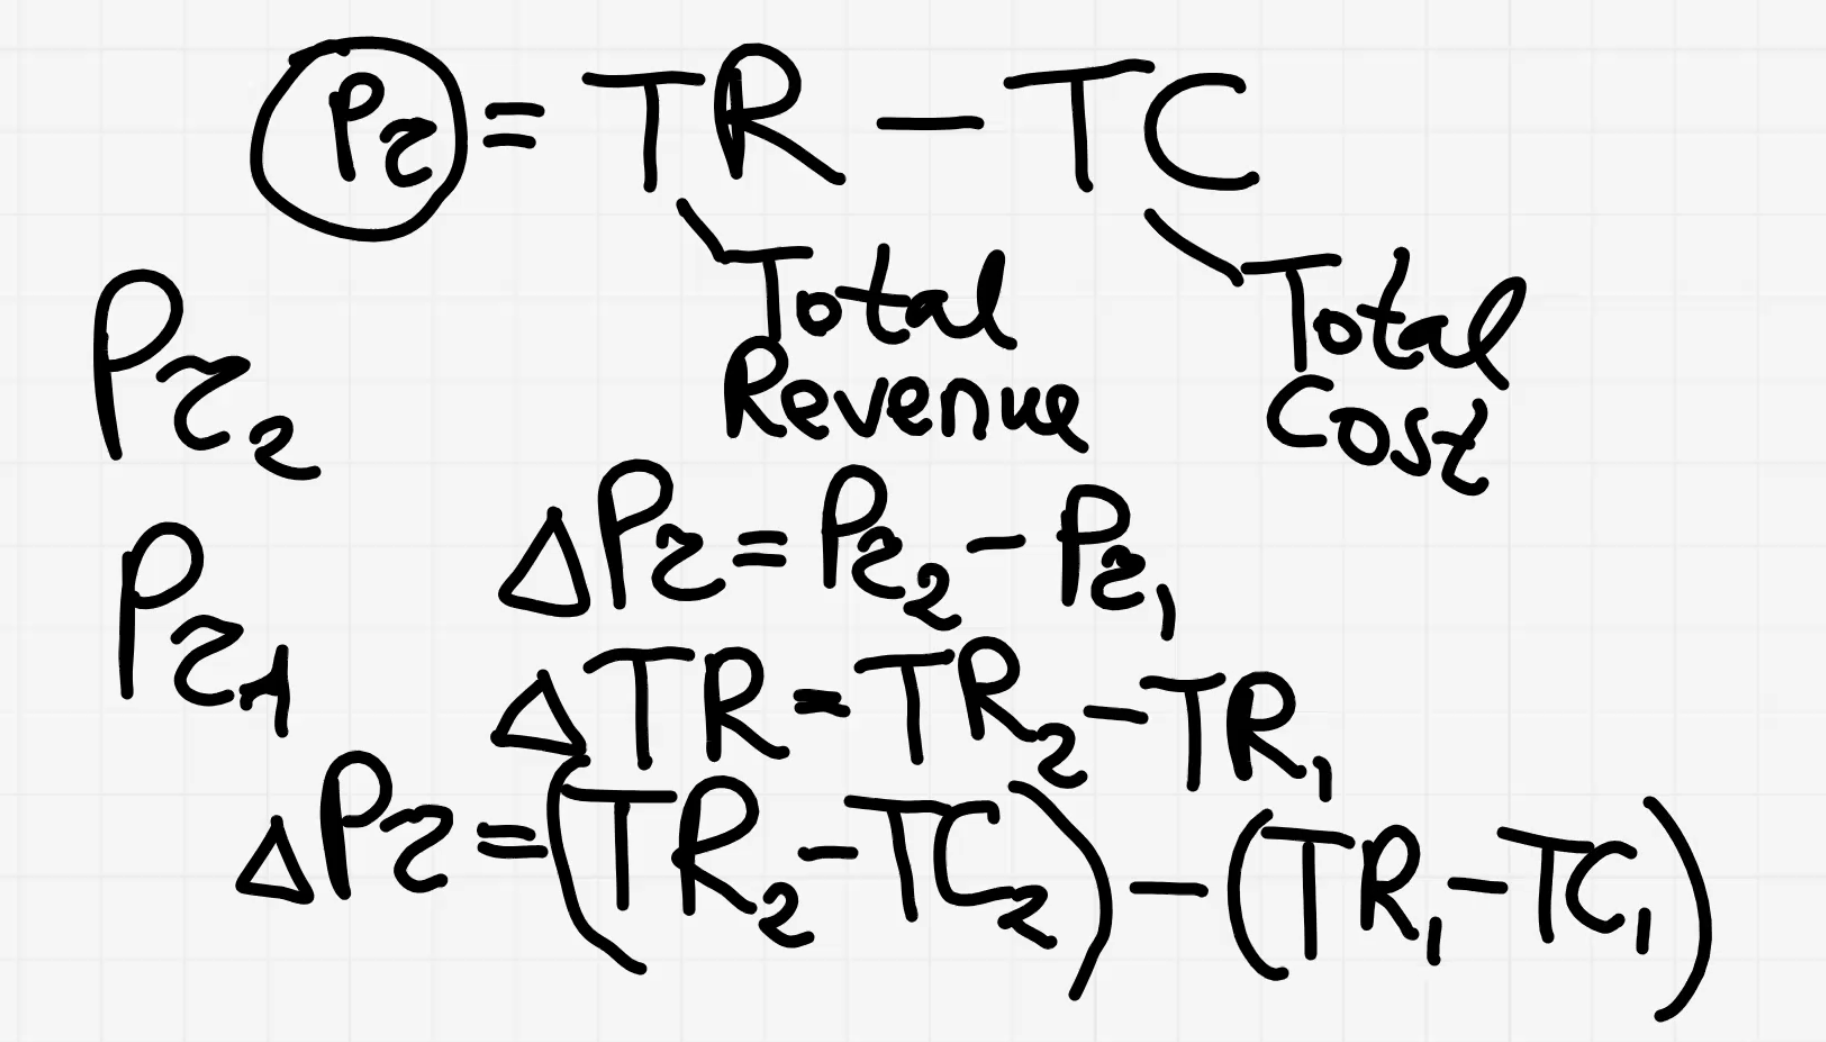 Pr = TR - TC
Total Revenue
Total Cost
Pr₂
Pr₁
ΔPr = Pr₂ - Pr₁
ΔTR = TR₂ - TR₁
ΔPr = (TR₂ - TC₂) - (TR₁ - TC₁)